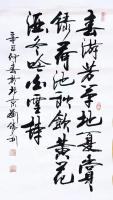 春游芳草地夏賞
綠荷池秋飲黃花
酒冬吟白雪詩
辛丑仲春於北京劉